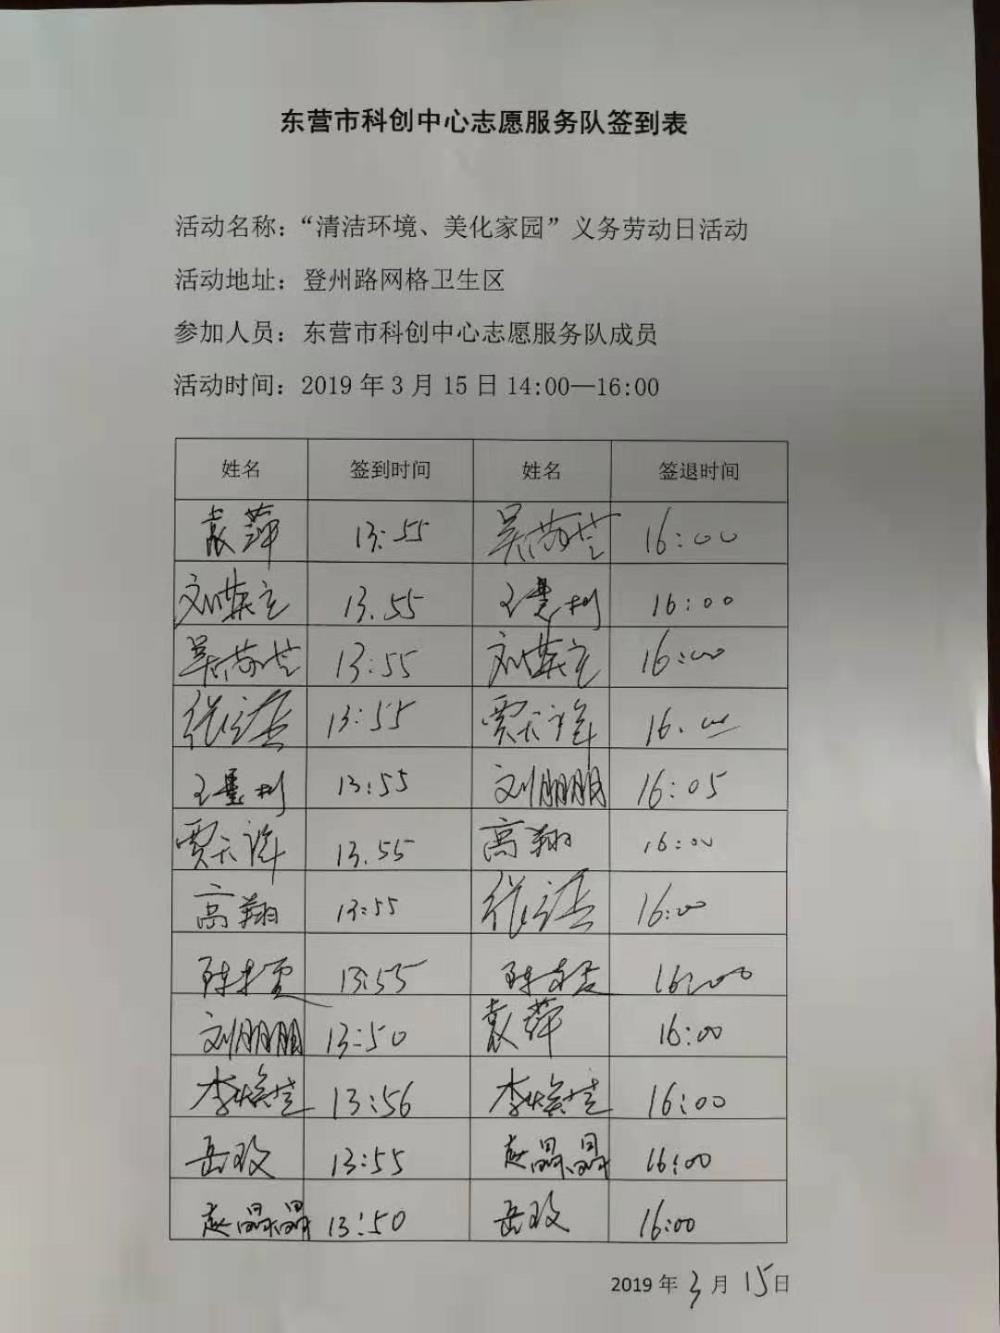 东营市科创中心志愿服务队签到表
活动名称：“清洁环境、美化家园”义务劳动日活动
活动地址：登州路网格卫生区
参加人员：东营市科创中心志愿服务队成员
活动时间：2019年3月15日14:00—16:00
姓名 签到时间 姓名 签退时间
袁萍 13:55 16:00
13.55 16:00
13:55 16:00
13:55 16.00
13:55 刘朋朋 16:05
13.55 高翔 16:00
高翔 13:55 16:00
13:55 16:00
刘朋朋 13:50 袁萍 16:00
13:56 16:00
岳玫 13:55 赵晶晶 16:00
赵晶晶 13:50 岳玫 16:00
2019年3月15日